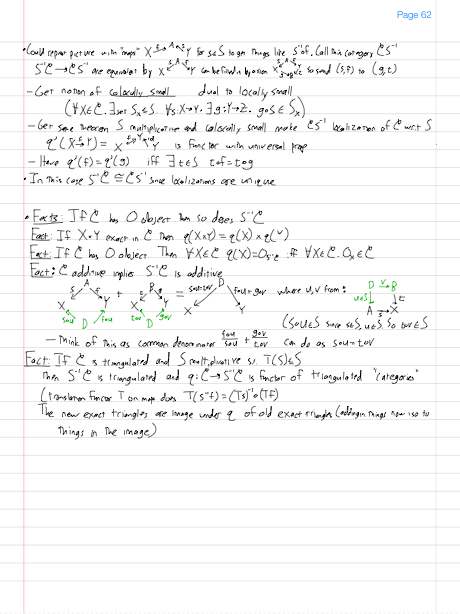 Page 62
• Could repeat picture with "maps" X →f A ←s Y for s∈S to get things like s⁻¹∘f. Call this category CS⁻¹
S⁻¹C → CS⁻¹ are equivalent by X ←s A →f Y can be found in by axiom X →g ←t Y so send (s,f) to (g,t)
– Get notion of colocally small dual to locally small
(∀X∈C. ∃set Sₓ⊆S. ∀s:X→Y. ∃g:Y→Z. g∘s∈Sₓ)
– Get same theorem S multiplicative and colocally small make CS⁻¹ localization of C w.r.t S
q'(X →f Y) = X →f Y ←id Y is functor with universal prop
– Have q'(f) = q'(g) iff ∃t∈S t∘f = t∘g
• In this case S⁻¹C ≅ CS⁻¹ since localizations are unique
• Facts: If C has 0 object then so does S⁻¹C
Fact: If X×Y exact in C then q(X×Y) = q(X) × q(Y)
Fact: If C has 0 object Then ∀X∈C q(X) = 0 iff ∀X∈C. 0ₓ∈C
Fact: C additive implies S⁻¹C is additive
X ←s A →f Y + X ←t B →g Y = X ←s∘u=t∘v D →f∘u+g∘v Y where u,v from: D →v B u∈S ↓ ↓t A →s X
s∘u D f∘u t∘v D g∘v (s∘u∈S since s∈S, u∈S. So t∘v∈S
– Think of this as common denominator f∘u/s∘u + g∘v/t∘v can do as s∘u = t∘v
Fact: If C is triangulated and S multiplicative s.t. T(S)⊆S
Then S⁻¹C is triangulated and q: C→S⁻¹C is functor of triangulated "categories"
(translation functor T on maps does T(s⁻¹f) = (Ts)⁻¹∘(Tf)
The new exact triangles are image under q of old exact triangles (adding in things now iso to
things in the image)